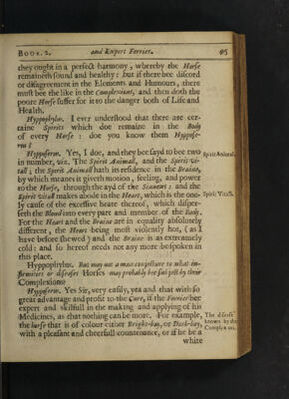 BOOK. 2. and Expert Ferrier. 65
they ought in a perfect harmony, whereby the Horse
remaineth sound and healthy: but if there bee discord
or disagreement in the Elements and Humours, there
must bee the like in the Complexions, and then doth the
poore Horse suffer for it to the danger both of Life and
Health.
Hyppophylus. I ever understood that there are cer-
taine Spirits which doe remaine in the Body
of every Horse: doe you know them Hyppose-
rus?
Hypposerus. Yes, I doe, and they bee sayd to bee two
in number, viz. The Spirit Animall, and the Spirit vi-
tall; the Spirit Animall hath its residence in the Braine,
by which meanes it giveth motion, feeling, and power
to the Horse, through the ayd of the Sinewes: and the
Spirit vitall makes abode in the Heart, which is the one-
ly cause of the excessive heate thereof, which disper-
seth the Blood into every part and member of the Body.
For the Heart and the Braine are in equality absolutely
different, the Heart being most violently hot, (as I
have before shewed) and the Braine is as extreamely
cold: and so hereof needs not any more be spoken in
this place.
Hyppophylus. But may not a man conjecture to what in-
firmities or diseases Horses may probably bee subject by their
Complexions?
Hypposerus. Yes Sir, very easily, yea and that with so
great advantage and profit to the Cure, if the Farrier bee
expert and skilfull in the making and applying of his
Medicines, as that nothing can be more. For example,
the horse that is of colour either Bright-bay, or Dark-bay,
with a pleasant and cheerfull countenance, or if he be a
white
Spirit Animal.
Spirit Vitall.
The diseases
known by the
Complexions.